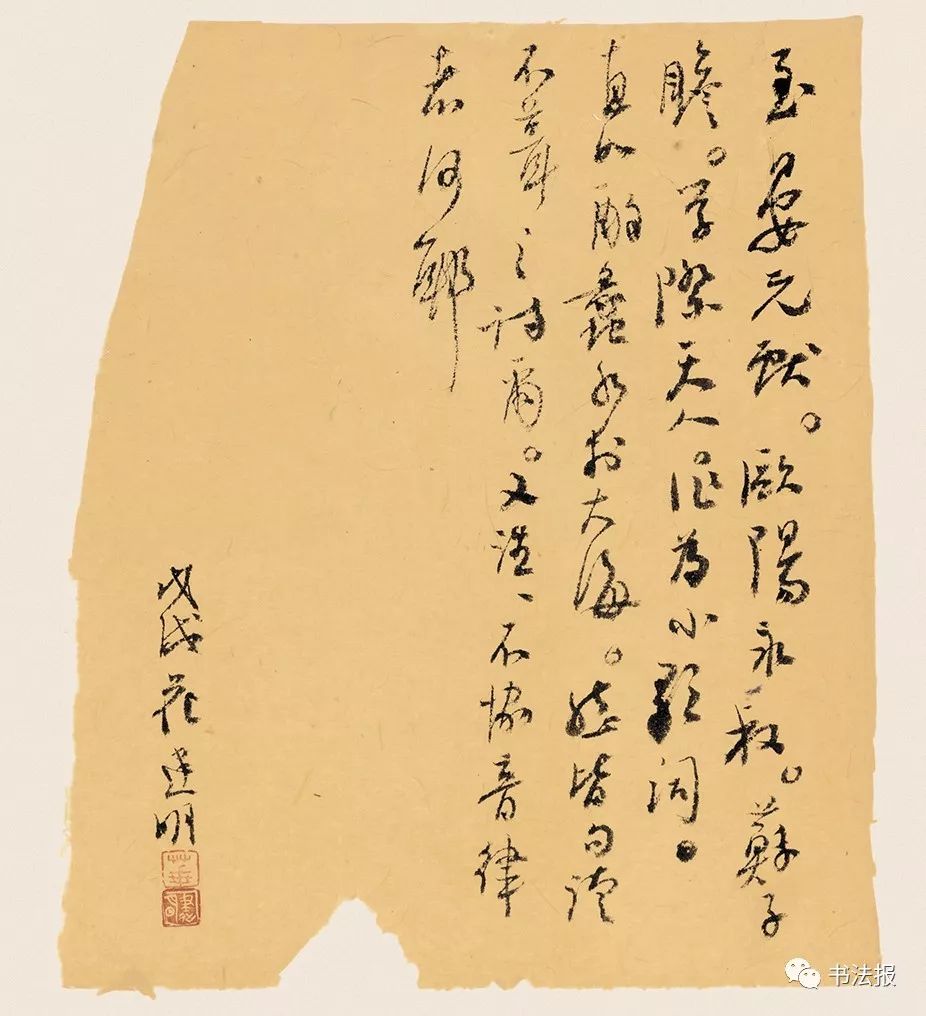 至晏元獻。歐陽永叔。蘇子
瞻。学際天人。作為小歌詞。
直如酌蠡水於大海。然皆句讀
不葺之詩爾。又往、不協音律
者何耶
戊戌花建明
书法报